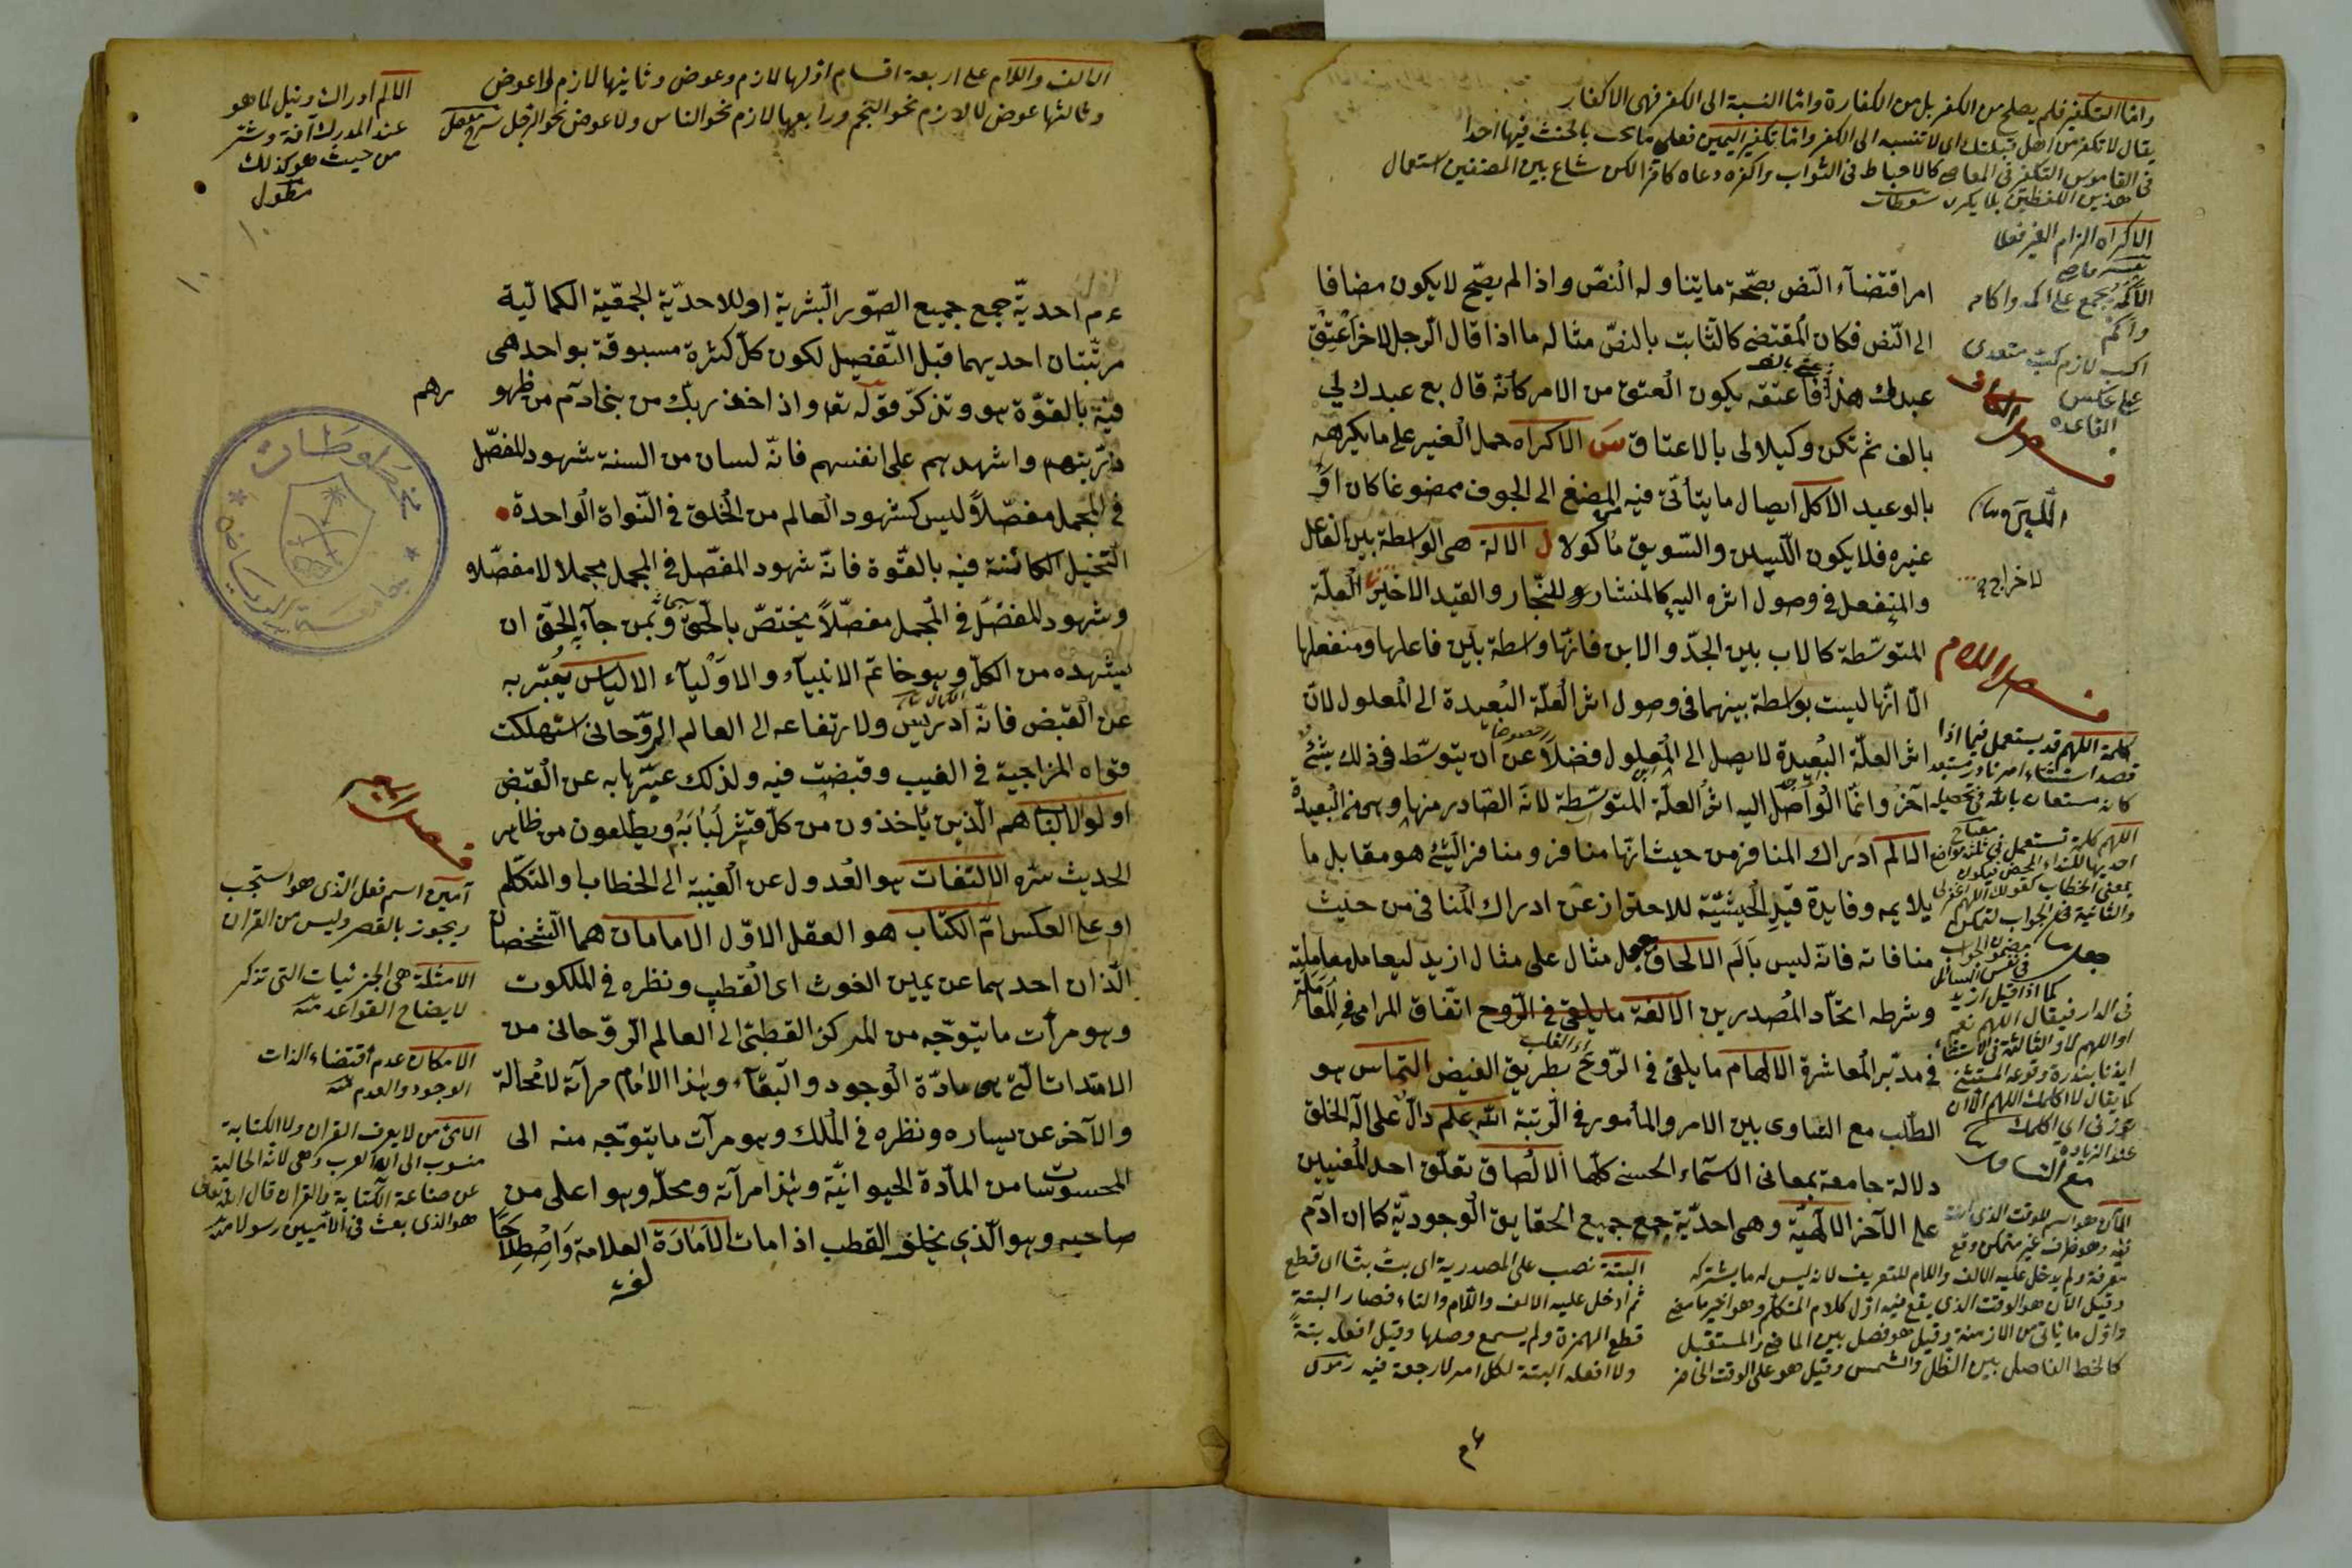 واما التكفير فلم يصلح من الكفر بل من الكفارة واما النسبة الى الكفر فهى الاكفار
يقال لا تكفر من اهل قبلتك اى لا تنسبه الى الكفر واما تكفير اليمين فعلى ما يجب بالحنث فيها احدا
فى القاموس التكفير فى المعاصى كالاحباط فى الثواب واكفره دعاه كافرا لكن شاع بين المصنفين استعمال
هذين اللفظين بلا
الاكراه الزام الغير فعلا
الاكمة يجمع على اكم واكام
واكم
اكب لازم كب متعدى
على عكس
القاعدة
فصل الكاف
امر اقتضآء النّص بصحّة مايتناوله النّصّ واذا لم يصّح لايكون مضافا
الى النّص فكان المقتضى كالثابت بالنصّ مثاله ما اذا قال الرجل لاخر اعتق
عبدك هذا فاعتقه يكون العتق من الامر كانّه قال بع عبدك لي
بالف ثم تكن وكيلا لى بالاعتاق س الاكراه حمل الغير على مايكرهه
بالوعيد الاكل ايصال مايتأتى فيه المضغ الى الجوف ممضوغا كان او
غيره فلايكون اللبن والسّويق مأكولا ل الالة هى الواسطة بين الفاعل
والمنفعل فى وصول اثره اليه كالمنشار للنجّار والقيد الاخير لاخراج العلّة
فصل اللام
المتوسّطة كالاب بين الجدّ والابن فانّها واسطة بين فاعلها ومنفعلها
الّا انّها ليست بواسطة بينهما فى وصول اثر العلّة البعيدة الى المعلول لانّ
اثر العلّة البعيدة لايصل الى المعلول فضلا عن ان يتوسّط فى ذلك شئ
آخر وانّما الواصل اليه اثر العلّة المتوسّطة لانه الصّادر منها وهى من البعيدة
الالم ادراك المنافر من حيث انّها منافر ومنافر الشئ هو مقابل ما
يلايمه وفايدة قيد الحيثيّة للاحتراز عن ادراك المنافى من حيث
منافاته فانّه ليس بألم الالحاق جعل مثال على مثال ازيد ليعامل معاملته
وشرطه اتحّاد المصدرين الالفة مايلقى فى الرّوح اتّفاق الراى فى المعاونة
فى تدبير المعاشرة الالهام مايلقى فى الرّوع بطريق الفيض التماس هو
الطّلب مع التساوى بين الامر والمأمور فى الرّتبة اللّه علم دالّ على الاله الحق
دلالة جامعة بمعانى الاسمآء الحسنى كلّها الالصاق تعلّق احد المعنيين
على الآخر الالهيّة وهى احديّة جمع جميع الحقايق الوجوديّة كما ان آدم
كلمة اللهم قد يستعمل فيما اذا
قصد استثناء امر نادر مستبعد
كانه مستعان بالله فى تحصيله
اللهم كلمة تستعمل فى ثلثة مواضع
احديها للنداء المحض فيكون
بمعنى الخطاب كقولك اللهم اغفر لى
والثانية فى الجواب لتمكن
مضمون الجواب
فى نفس السائل
كما اذا قيل ازيد
فى الدار فيقال اللهم نعم
او اللهم لا والثالثة فى الاستثناء
ايذانا بندرة وقوعه المستثنى
كما يقال لا اكلمك اللهم الا ان
تزورنى اى اكلمك
عند الزيارة
الآن هو اسم للوقت الذى انت
فيه وهو ظرف غير متمكن وقع
معرفة ولم يدخل عليه الالف واللام للتعريف لانه ليس له مايشتركه
وقيل الآن هو الوقت الذى يقع فيه اول كلام المتكلم وهو اخر ما مضى
واول ما ياتى من الازمنة وقيل هو فصل بين الماضى والمستقبل
كالخط الفاصل بين الظل والشمس وقيل هو على الوقت الحاضر
البتة نصب على المصدرية اى بت بتا اى قطع
ثم ادخل عليه الالف واللام والتاء فصار البتة
قطع الهمزة ولم يسمع وصلها وقيل افعله بتةً
ولا افعله البتة لكل امر لا رجعة فيه
الالف واللام على اربعة اقسام اولها لازم وعوض وثانيها لازم لا عوض
وثالثها عوض لا لازم نحو النجم ورابعها لا لازم نحو الناس ولا عوض نحو الرجل شرح مفصل
الالم ادراك ونيل لما هو
عند المدرك آفة وشر
من حيث هو كذلك
مطول
١٠
١٠
ءم احديّة جمع جميع الصّور البشرية او للاحديّة الجمعّية الكماليّة
مرتبتان احديهما قبل التّفصيل لكون كلّ كثرة مسبوقة بواحد هى
فيه بالقوّة هو وتذكر قوله تعا واذ اخذ ربك من بنى آدم من ظهورهم
ذريتهم واشهدهم على انفسهم فانّه لسان من السنة شهود المفصّل
فى المجمل مفصّلاً ليس كشهود العالم من الخلق فى النّواة الواحدة
النّخيل الكائنة فيه بالقّوة فانّه شهود المفصّل فى المجمل مجملا لا مفصّلا و
وشهود المفصّل فى المجمل مفصّلاً يختصّ بالحقّ وبمن جآء الحقّ ان
يشهده من الكلّ وهو خاتم الانبيآء والاوليآء الالياس يعبّر به
عن القبض فانّه ادريس ولارتفاعه الى العالم الرّوحانى استهلكت
قواه المزاجية فى الغيب وقبضت فيه ولذلك عبّر به عن القبض
اولوا الالباب هم الّذين ياخذون من كلّ قشر لبابه ويطلعون من ظاهر
الحديث سّره الالتفات هو العدول عن الغيبة الى الخطاب او التكلّم
او على العكس امّ الكتاب هو العقل الاوّل الامامان هما الشّخصان
الّذان احدهما عن يمين الغوث اى القطب ونظره فى الملكوت
وهو مرآت مايتوّجه من المركز القطبىّ الى العالم الرّوحانى من
الامدادات الّتى هى مادّة الوجود والبقآء وهذا الامام مرآته لا محالة
والآخر عن يساره ونظره فى الملك وهو مرآت مايتوّجه منه الى
المحسوسات من المادّة الحيوانيّة وهذا مرآته ومحلّه وهو اعلى من
صاحبه وهو الّذي يخلف القطب اذا مات الامارة العلامة واصطلاحاً
لغة
آمين اسم فعل الذى هو استجب
ويجوز بالقصر وليس من القران
الامثلة هى الجزئيات التى تذكر
لايضاح القواعد منه
الامكان عدم اقتضاء الذات
الوجود والعدم منه
الامى من لا يعرف القران ولا الكتابة
منسوب الى امة العرب وهى لانه الخالية
عن صناعة الكتابة والقران قال الله تعالى
هو الذى بعث فى الاميين رسولا منه
مخطوطات
جامعة الرياض